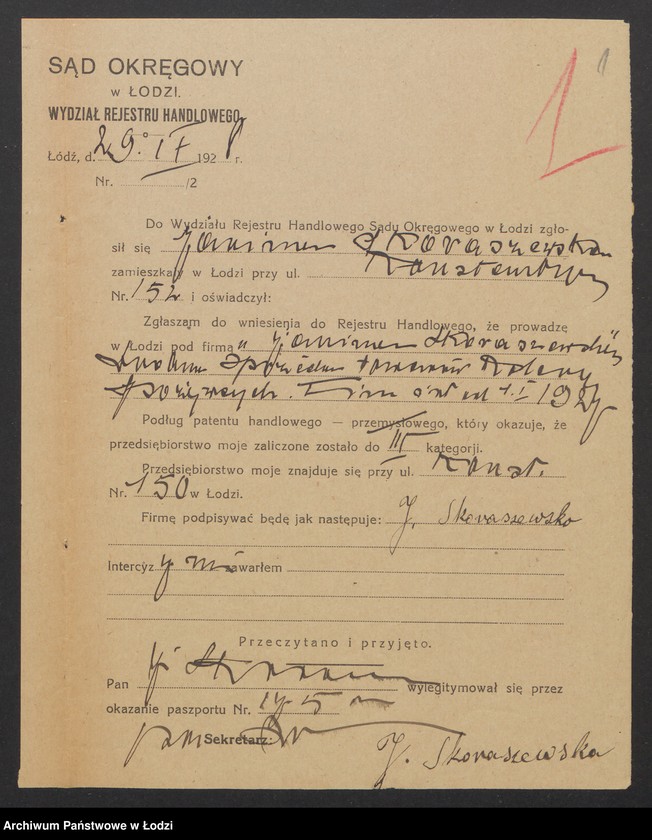 1 1
SĄD OKRĘGOWY
w ŁODZI.
WYDZIAŁ REJESTRU HANDLOWEGO
Łódź, d. 29. IX 1928 r.
Nr. /2
Do Wydziału Rejestru Handlowego Sądu Okręgowego w Łodzi zgło-
sił się Janina Skoraszewska
zamieszkały w Łodzi przy ul.
Nr. 152 i oświadczył:
Zgłaszam do wniesienia do Rejestru Handlowego, że prowadzę
w Łodzi pod firmą „Janina Skoraszewska"
spożywczych. Firma istn. od 1.I 192
Podług patentu handlowego — przemysłowego, który okazuje, że
przedsiębiorstwo moje zaliczone zostało do III kategorji.
Przedsiębiorstwo moje znajduje się przy ul. Konst.
Nr. 150 w Łodzi.
Firmę podpisywać będę jak następuje: J. Skoraszewska
Intercyzy nie zawarłem
Przeczytano i przyjęto.
Pan wylegitymował się przez
okazanie paszportu Nr.
Sekretarz:
J. Skoraszewska
Archiwum Państwowe w Łodzi